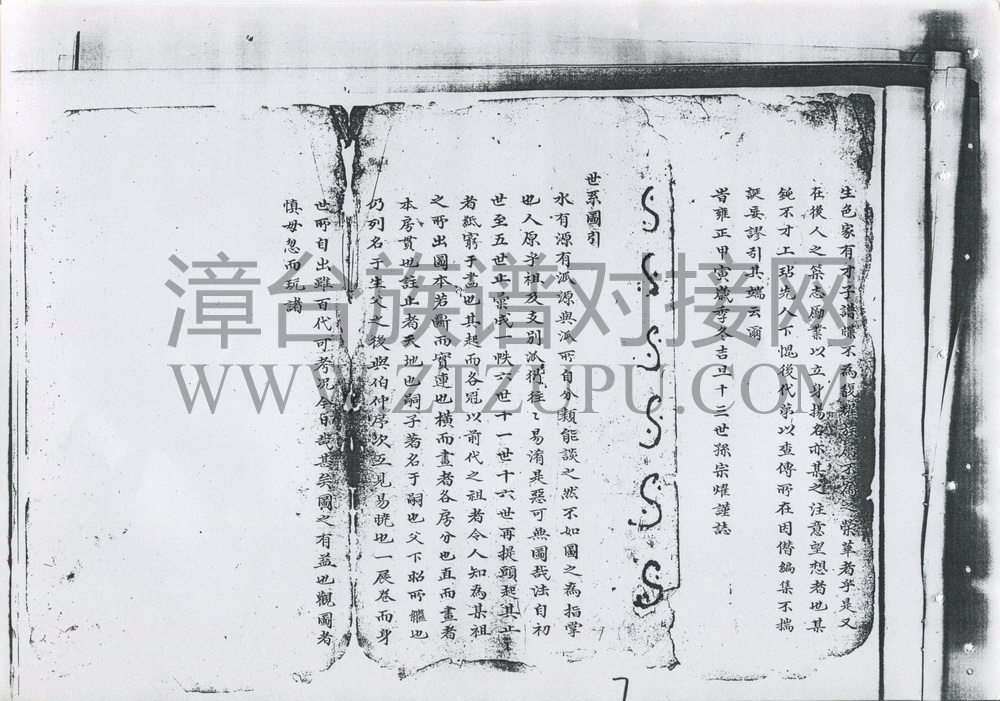 生色家有才子譜牒不為
不
之榮華者乎是又
在後人之篤志勵業以立身揚名亦其之注意望想者也某
鈍不才上玷先人下愧後代第以查傳所在因僭編集不揣
誕妄謬引其端云爾
旹雍正甲寅歲季冬吉旦十三世孫宗燿謹誌
世系圖引
水有源有派源與派所自分類能談之然不如圖之為指掌
也人原乎祖及支別派衍往々易淆是惡可無圖哉法自初
世至五世止彙成一帙六世十一世十六世再提頭起其止
者紙窮于畫也其起而各冠以前代之祖者令人知為某祖
之所出圖本若斷而實連也橫而畫者各房分也直而畫者
本房貫也註止者天地也嗣子著名于嗣也父下昭所繼也
仍列名于生父之後與伯仲序次互見易曉也一展卷而身
世所自出雖百代可考況今日哉甚矣圖之有益也觀圖者
慎毋忽而玩諸
7
漳台族谱对接网
WWW.ZTZUPU.COM